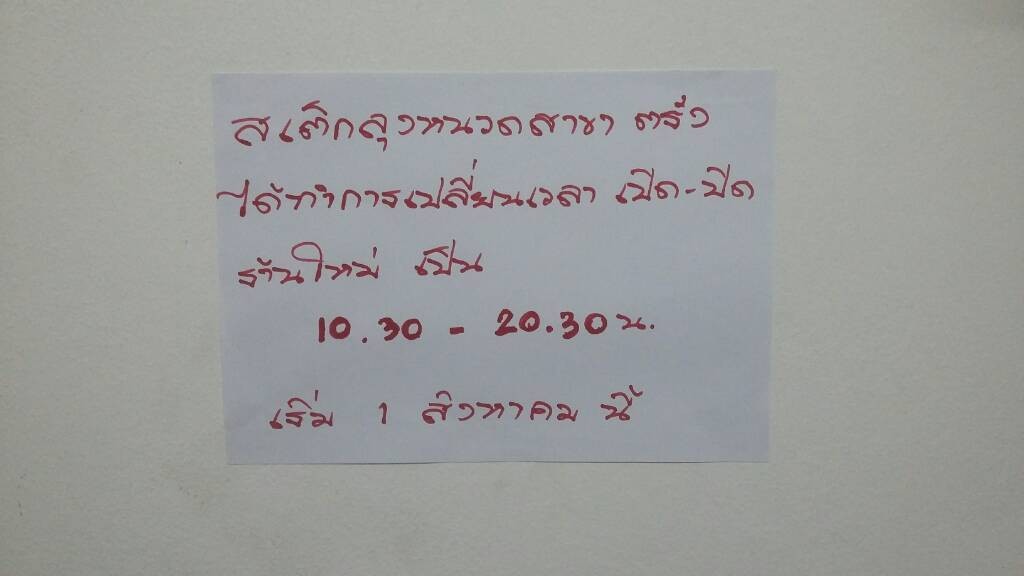 สเต็กลุงหนวดสาขา ตรัง
ได้ทำการเปลี่ยนเวลา เปิด-ปิด
ร้านใหม่ เป็น
10.30 - 20.30 น.
เริ่ม 1 สิงหาคม นี้